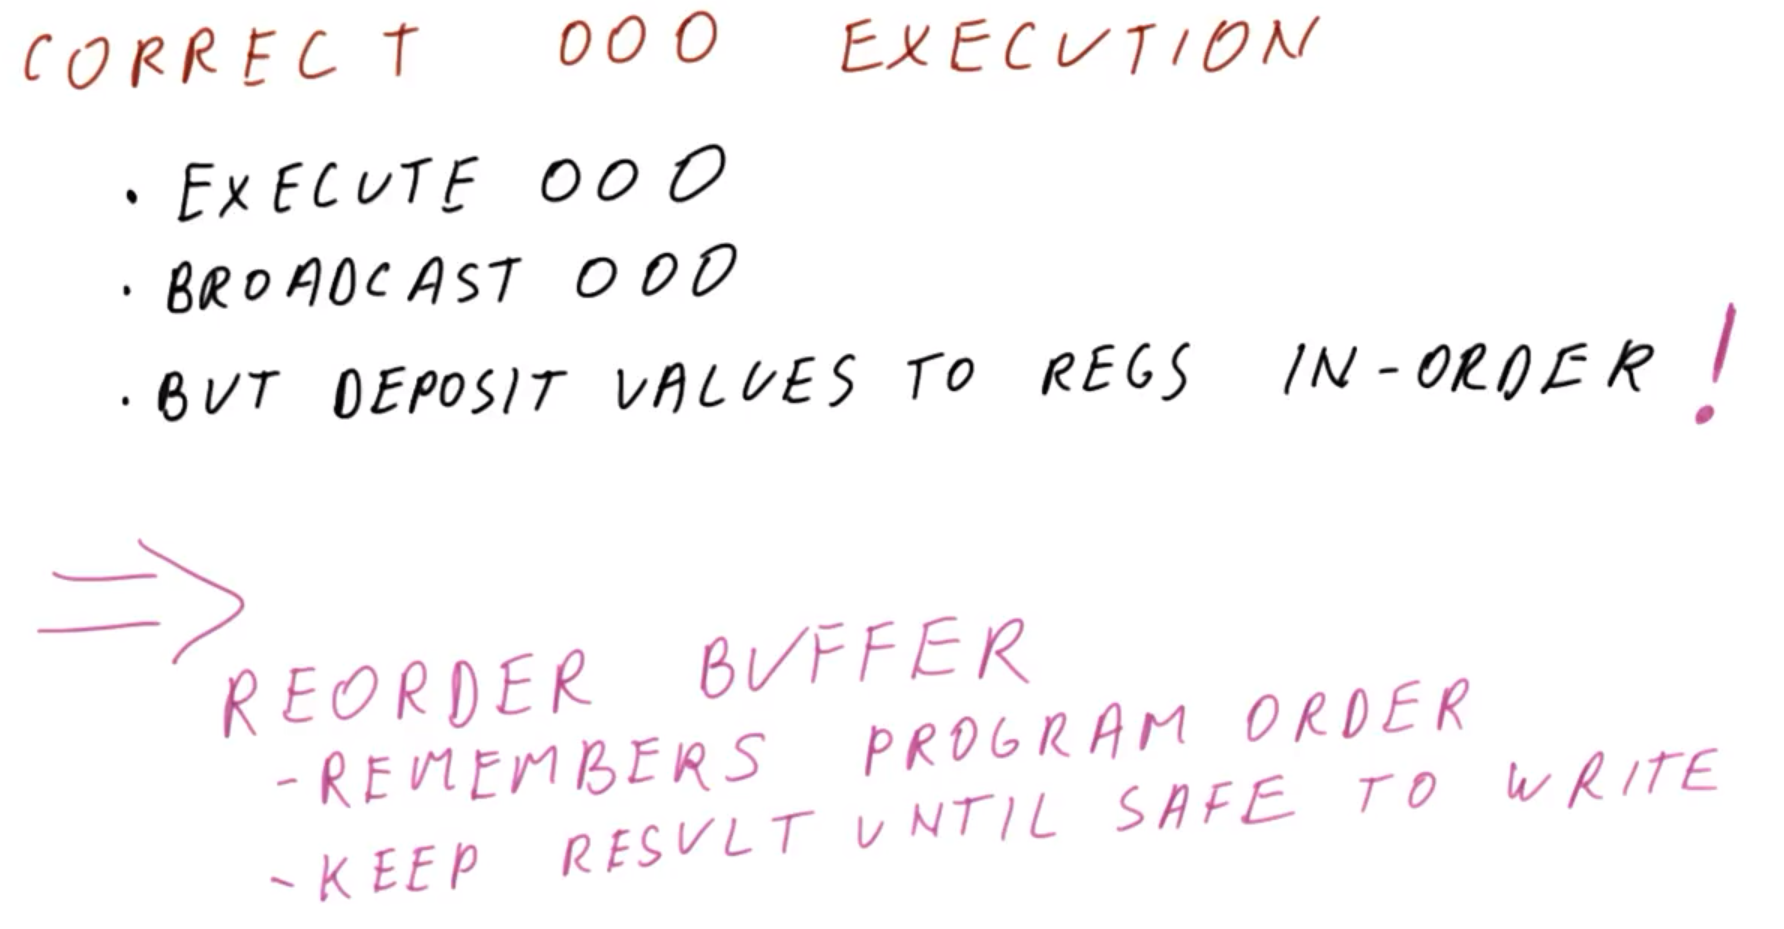 CORRECT OOO EXECUTION
· EXECUTE OOO
· BROADCAST OOO
· BUT DEPOSIT VALUES TO REGS IN-ORDER!
⇒
REORDER BUFFER
- REMEMBERS PROGRAM ORDER
- KEEP RESULT UNTIL SAFE TO WRITE